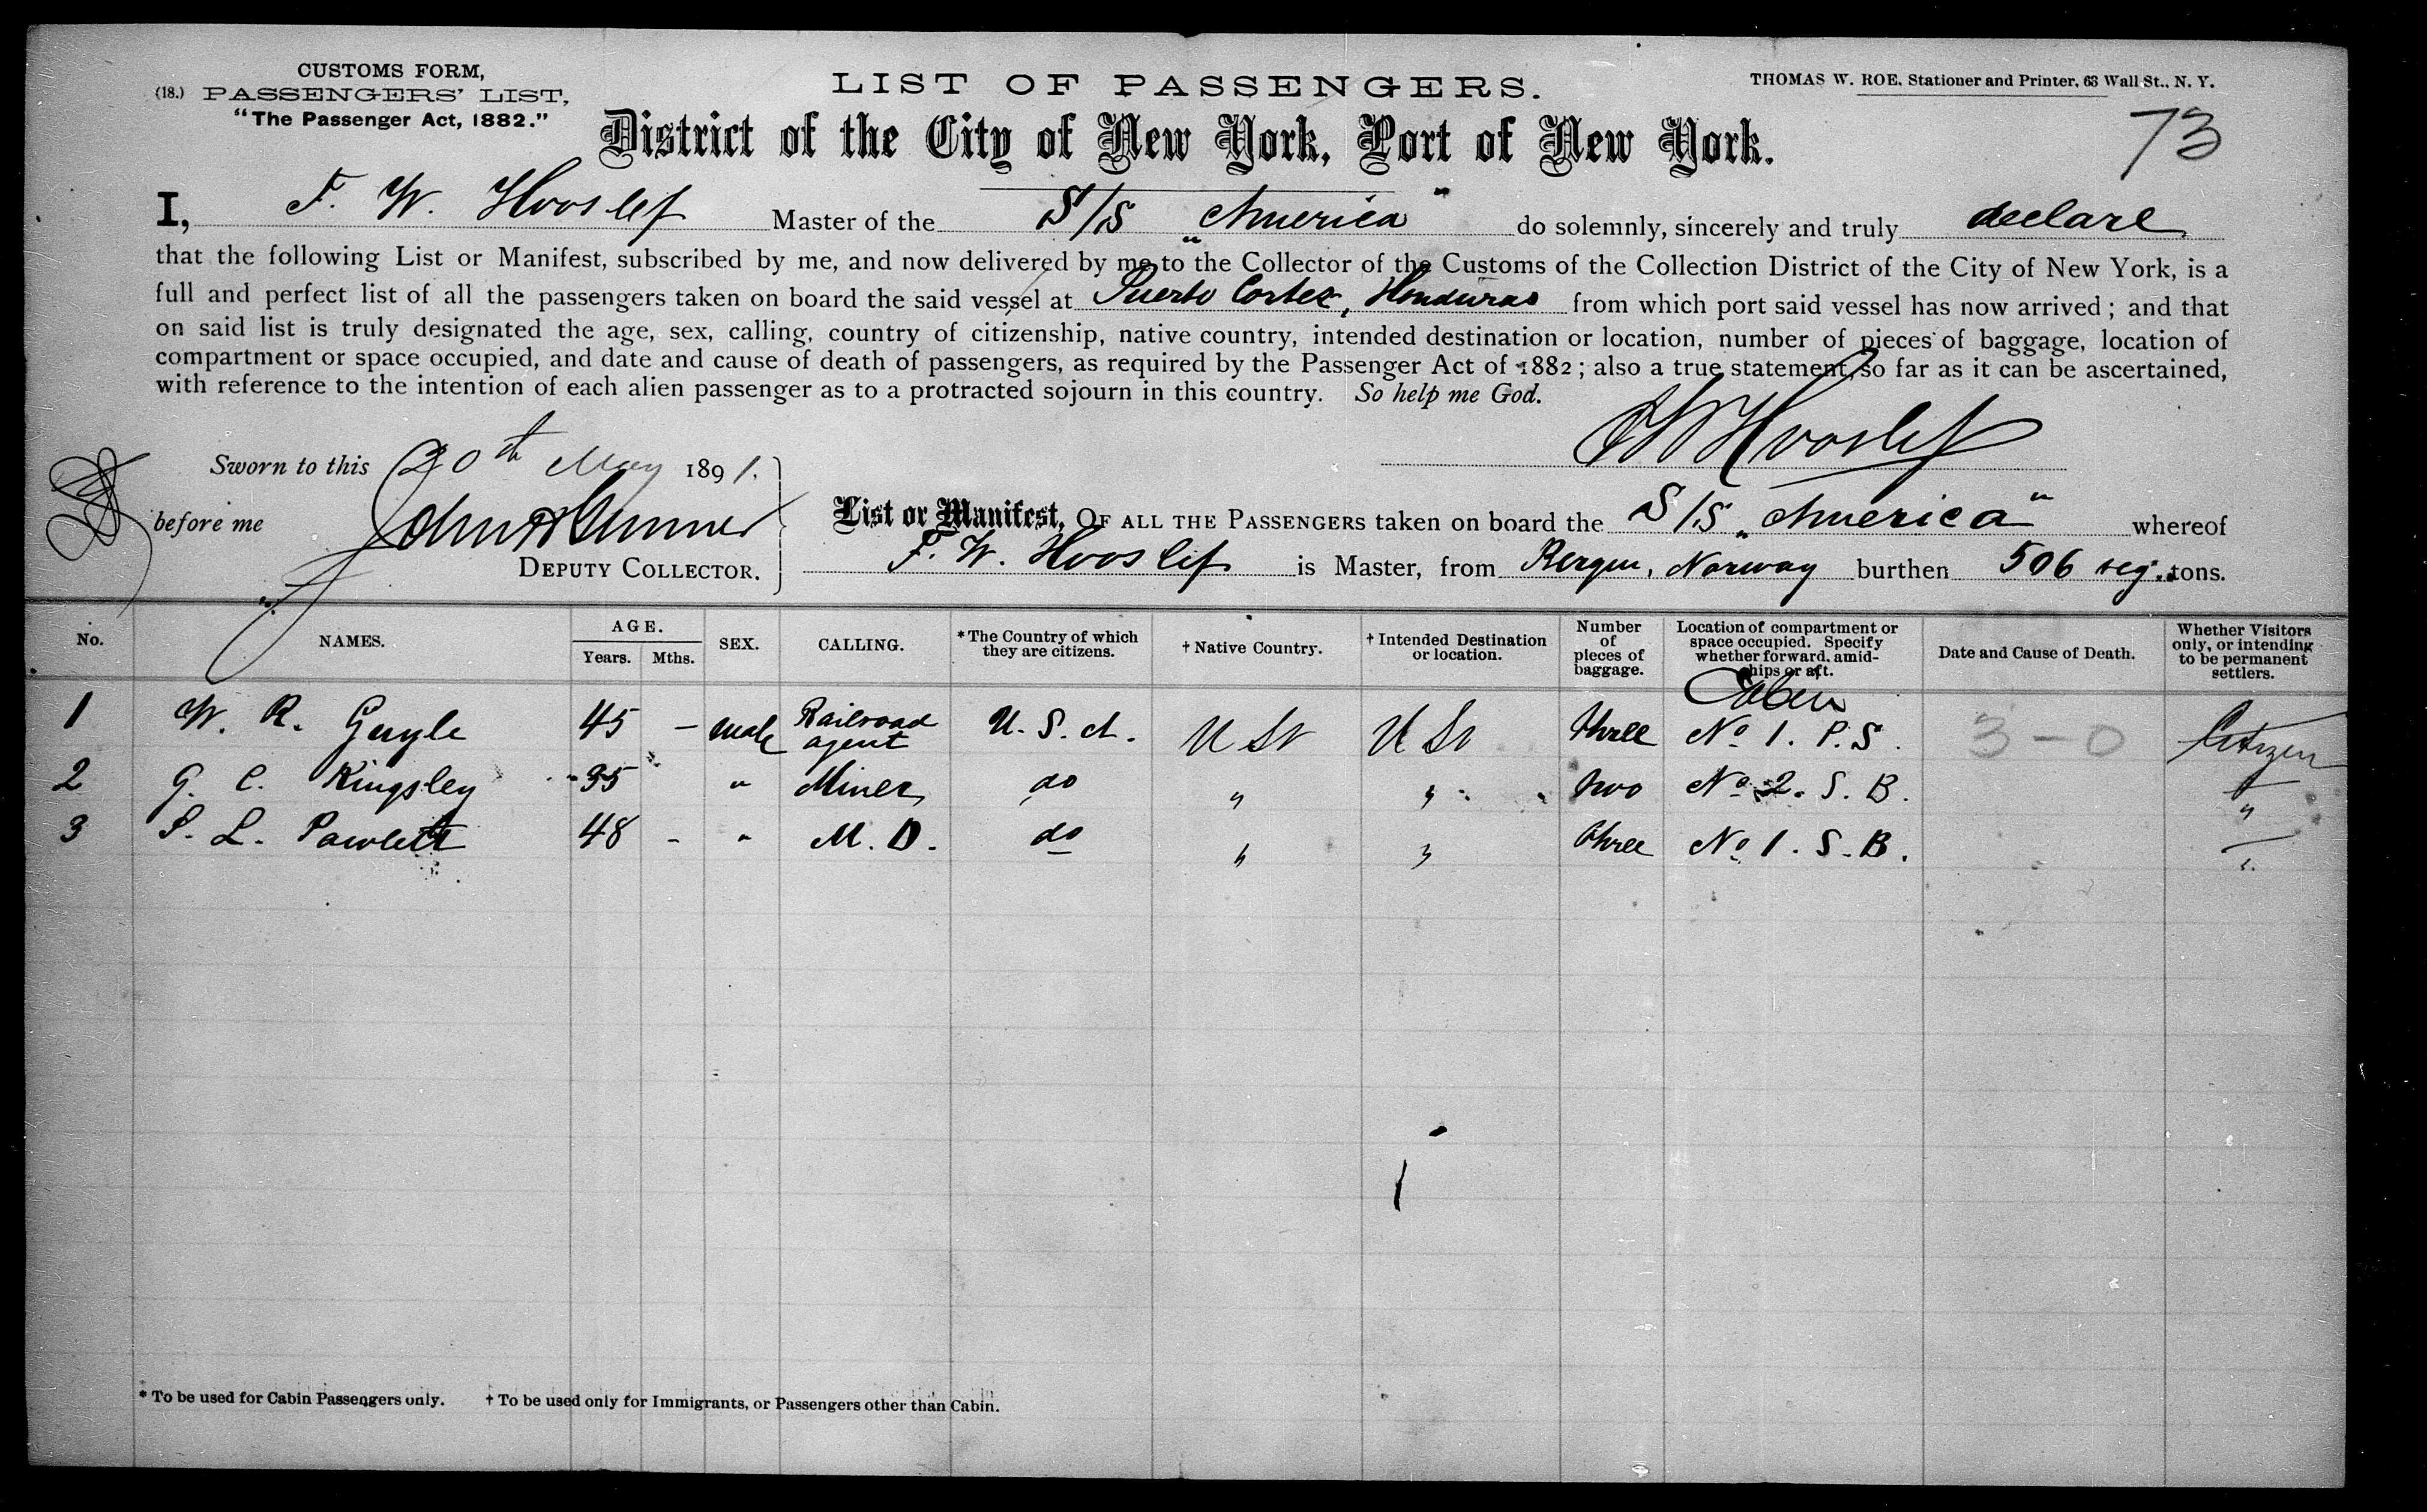 CUSTOMS FORM,
(18.) PASSENGERS' LIST,
"The Passenger Act, 1882."
LIST OF PASSENGERS.
THOMAS W. ROE, Stationer and Printer, 63 Wall St., N. Y.
District of the City of New York, Port of New York.
73
I, F. W. Hvoslef Master of the S/S "America" do solemnly, sincerely and truly declare
that the following List or Manifest, subscribed by me, and now delivered by me to the Collector of the Customs of the Collection District of the City of New York, is a
full and perfect list of all the passengers taken on board the said vessel at Puerto Cortez, Honduras from which port said vessel has now arrived; and that
on said list is truly designated the age, sex, calling, country of citizenship, native country, intended destination or location, number of pieces of baggage, location of
compartment or space occupied, and date and cause of death of passengers, as required by the Passenger Act of 1882; also a true statement, so far as it can be ascertained,
with reference to the intention of each alien passenger as to a protracted sojourn in this country. So help me God.
FW Hvoslef
Sworn to this 20th May 1891.
before me
DEPUTY COLLECTOR.
List or Manifest, OF ALL THE PASSENGERS taken on board the S/S "America" whereof
F. W. Hvoslef is Master, from Bergen, Norway burthen 506 reg. tons.
No. NAMES. AGE. Years. Mths. SEX. CALLING. *The Country of which they are citizens. †Native Country. †Intended Destination or location. Number of pieces of baggage. Location of compartment or space occupied. Specify whether forward, amidships or aft. Date and Cause of Death. Whether Visitors only, or intending to be permanent settlers.
Cabin
1 W. R. Gayle 45 - male Railroad agent U. S. A. U St U St three No 1. P. S. 3-0 Citizen
2 G. C. Kingsley 35 " Miner do " " two No 2. S. B. "
3 S. L. Pawlett 48 - " M. D. do " " three No 1. S. B. "
* To be used for Cabin Passengers only. † To be used only for Immigrants, or Passengers other than Cabin.